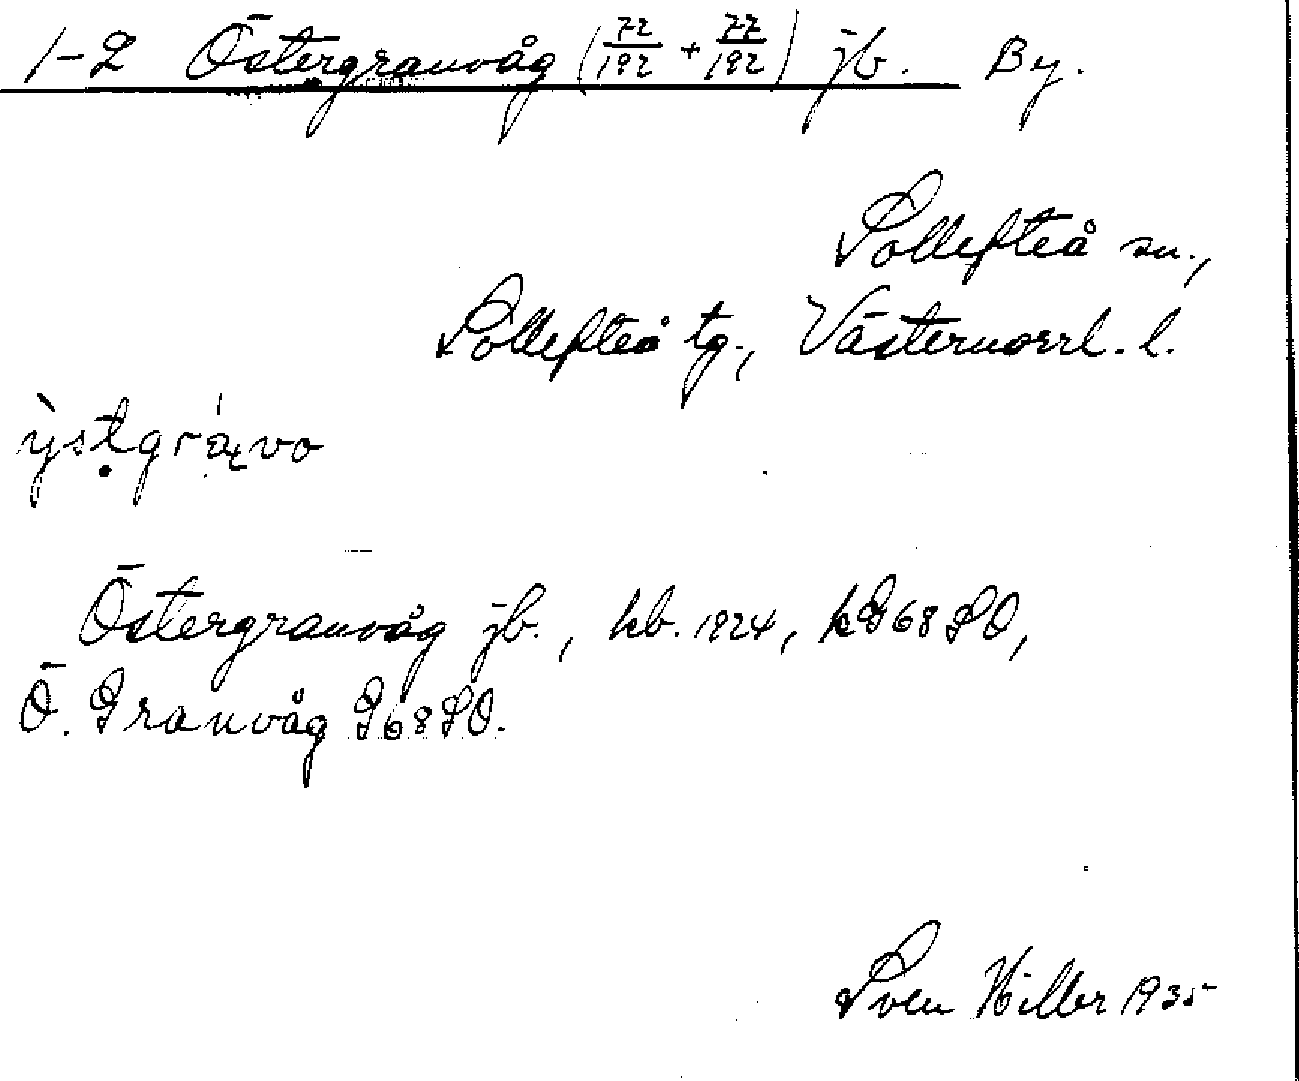 1-2 Östergranvåg (72/192 + 77/192) jb. By.
Sollefteå sn.,
Sollefteå tg., Västernorrl. l.
Östergranvåg jb., kb. 1824, kG68SO,
Ö. Granvåg G68SO.
Sven Hiller 1935